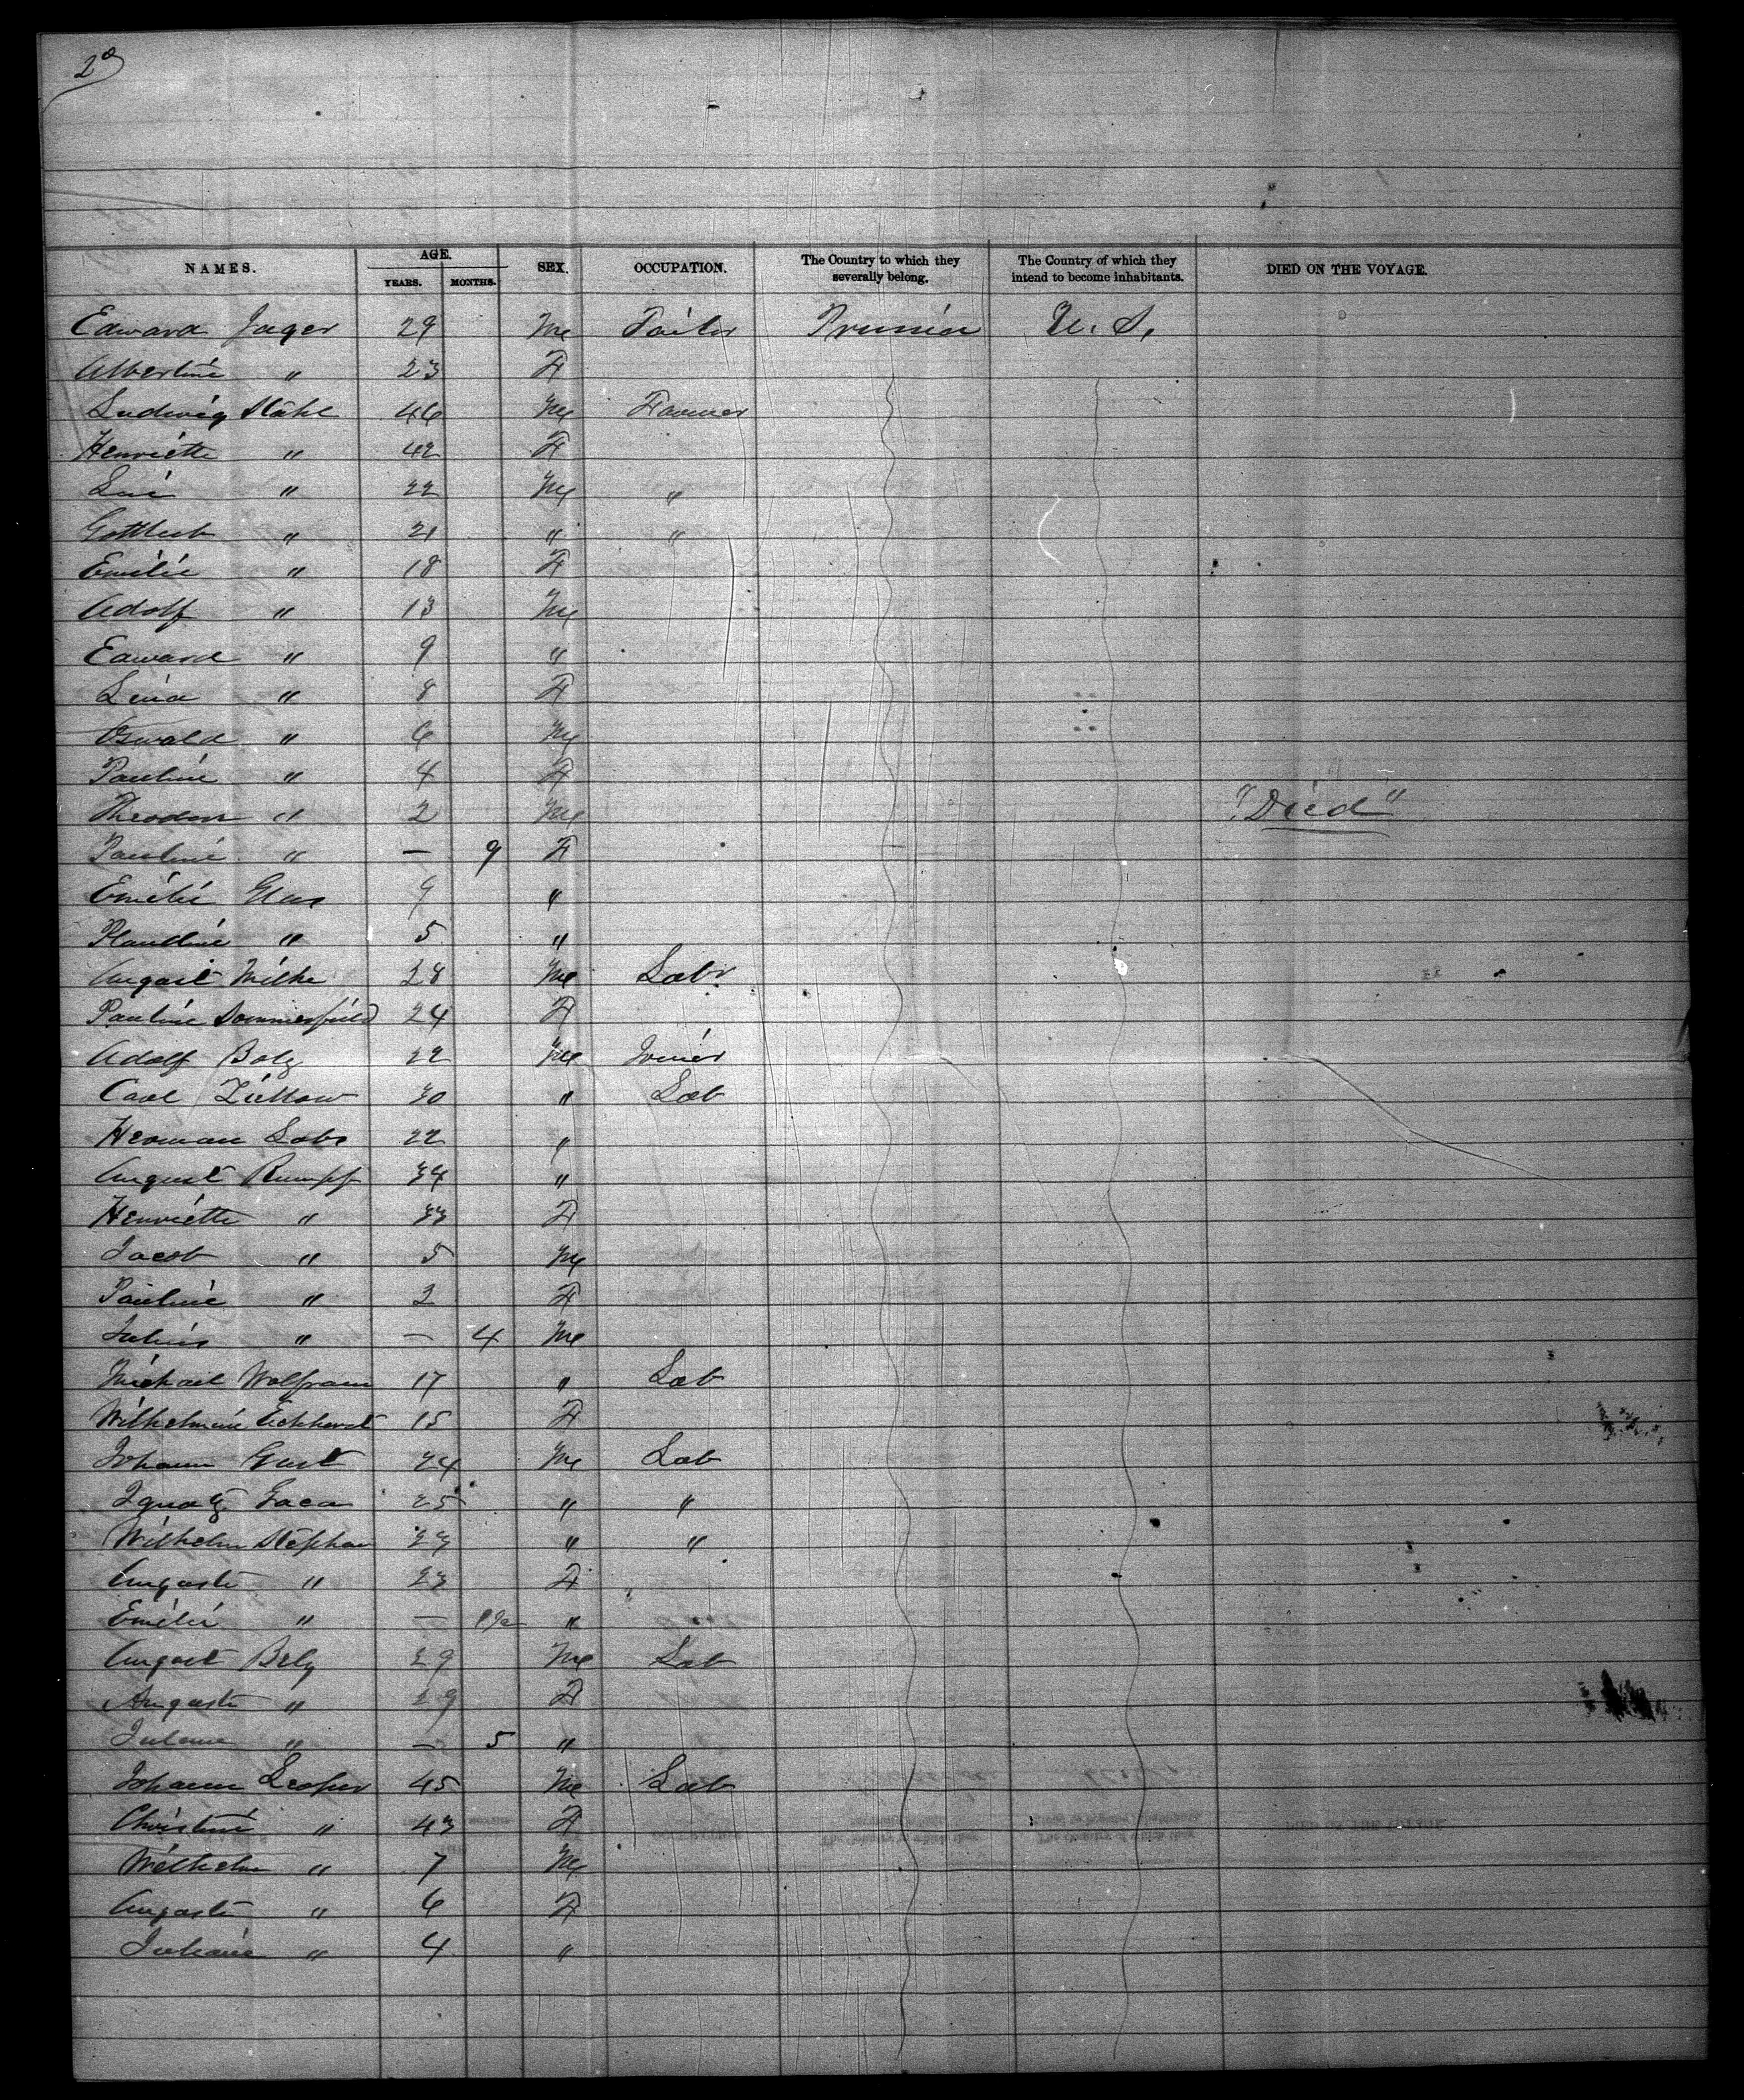 2
NAMES. AGE. SEX. OCCUPATION. The Country to which they severally belong. The Country of which they intend to become inhabitants. DIED ON THE VOYAGE.
YEARS. MONTHS.
Edward Jager 29 M Tailor Prussia U. S.
Albertine " 23 F
Ludwig Stahl 46 M Farmer
Henriette " 42 F
" 22 M "
Gottlieb " 21 " "
Emilie " 18 F
Adolf " 13 M
Edward " 9 "
Lina " 8 F
Oswald " 6 M
Pauline " 4 F
Theodor " 2 M "Died"
Pauline " — 9 F
Emilie 9 "
" 5 "
August Milke 28 M Labr
Pauline Sommerfield 24 F
Adolf Bolz 22 M Joiner
Carl 30 " Lab
Herman 22 "
August Rumpf 34 "
Henriette " 33 F
Jacob " 5 M
Pauline " 2 F
Julius " — 4 M
Michael Wolfram 17 " Lab
Wilhelmine Eckhardt 15 F
Johann Gust 24 M Lab
Ignatz Gaca 25 " "
Wilhelm Stephan 27 " "
Auguste " 23 F
Emilie " — "
August Belz 29 M Lab
Auguste " 29 F
" — 5 "
Johann 45 M Lab
Christine " 43 F
Wilhelm " 7 M
Auguste " 6 F
" 4 "